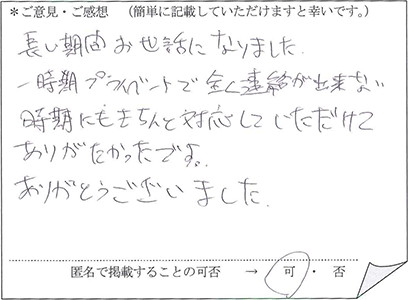 ＊ご意見・ご感想　（簡単に記載していただけますと幸いです。）
長い期間お世話になりました。
一時期プライベートで全く連絡が出来ない
時期にもきちんと対応していただけて
ありがたかったです。
ありがとうございました。
匿名で掲載することの可否　→　可・否